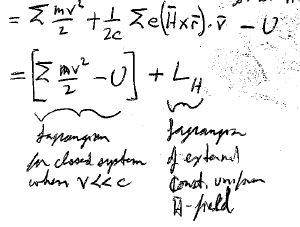 = Σ mv²/2 + 1/2c Σ e(H̄ x r̄) · v̄ - U
= [Σ mv²/2 - U] + L_H
Lagrangian
for closed system
when V << c
Lagrangian
of external
const. uniform
H̄-field